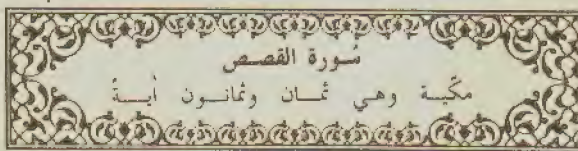 سُورة القصص
مكّيـة وهي ثمـان وثمانــون أيــةً